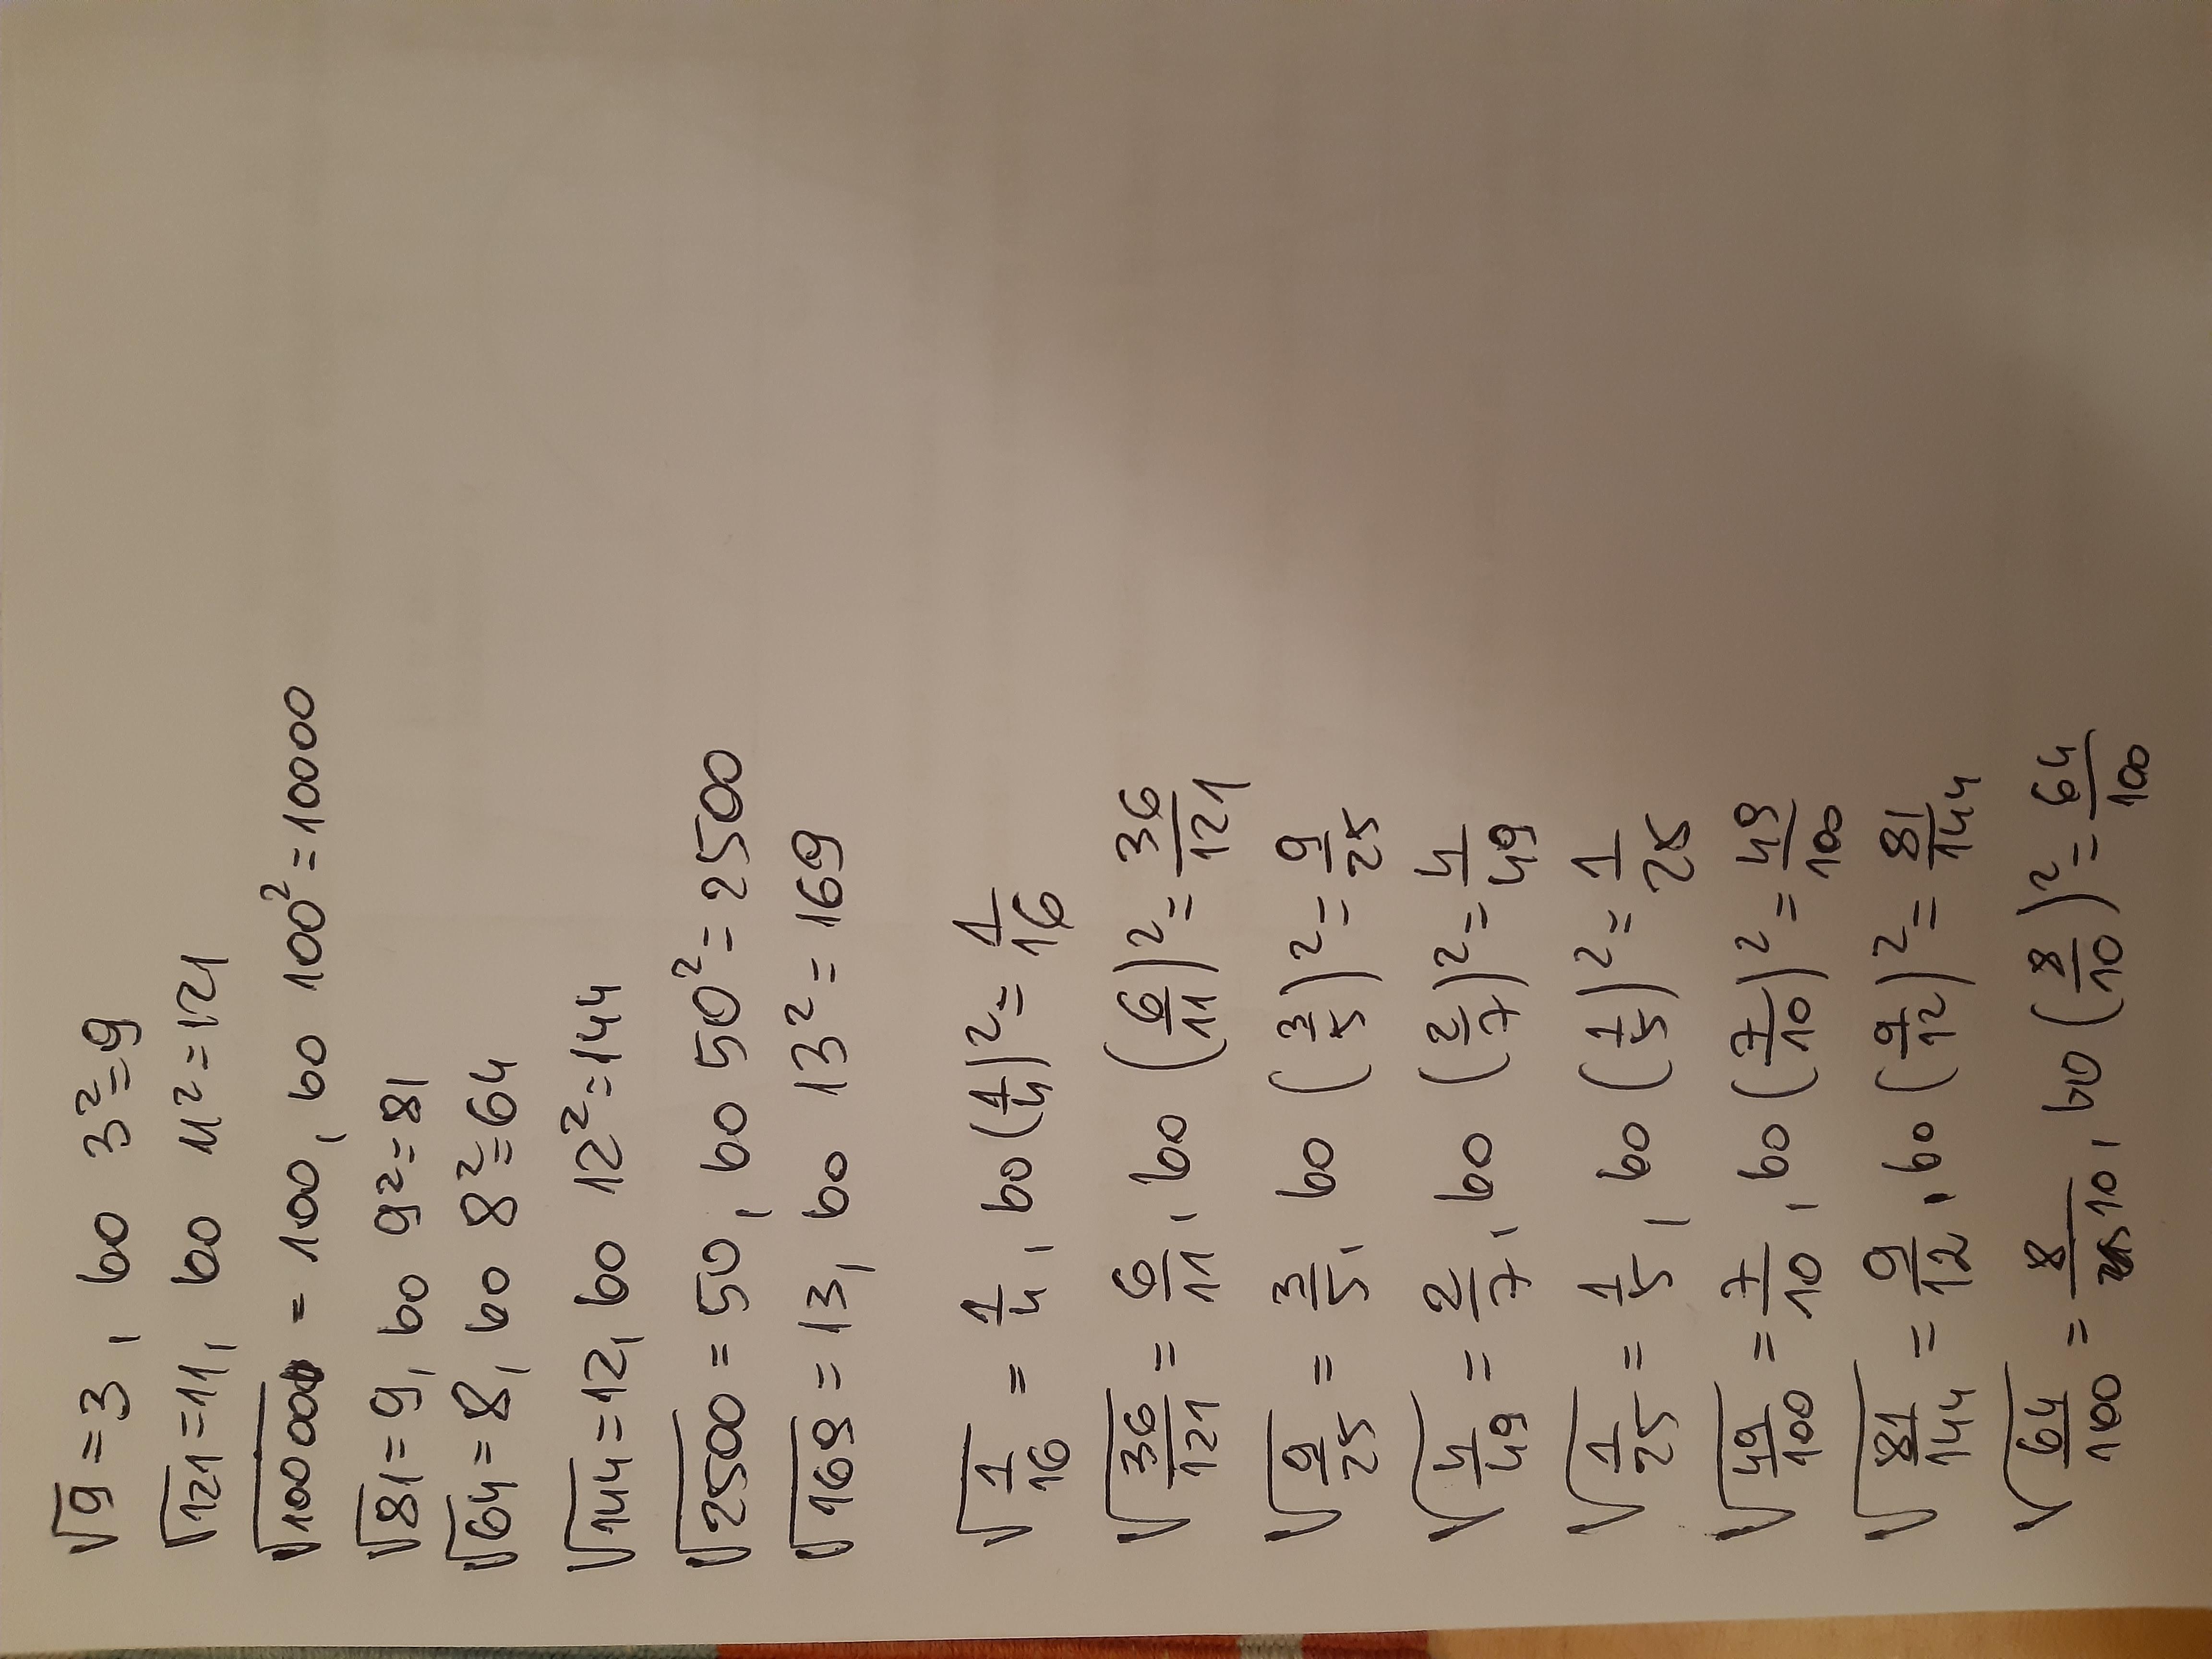 √9 = 3, bo 3² = 9
√121 = 11, bo 11² = 121
√10000 = 100, bo 100² = 10000
√81 = 9, bo 9² = 81
√64 = 8, bo 8² = 64
√144 = 12, bo 12² = 144
√2500 = 50, bo 50² = 2500
√169 = 13, bo 13² = 169
√(1/16) = 1/4, bo (1/4)² = 1/16
√(36/121) = 6/11, bo (6/11)² = 36/121
√(9/25) = 3/5, bo (3/5)² = 9/25
√(4/49) = 2/7, bo (2/7)² = 4/49
√(1/25) = 1/5, bo (1/5)² = 1/25
√(49/100) = 7/10, bo (7/10)² = 49/100
√(81/144) = 9/12, bo (9/12)² = 81/144
√(64/100) = 8/10, bo (8/10)² = 64/100